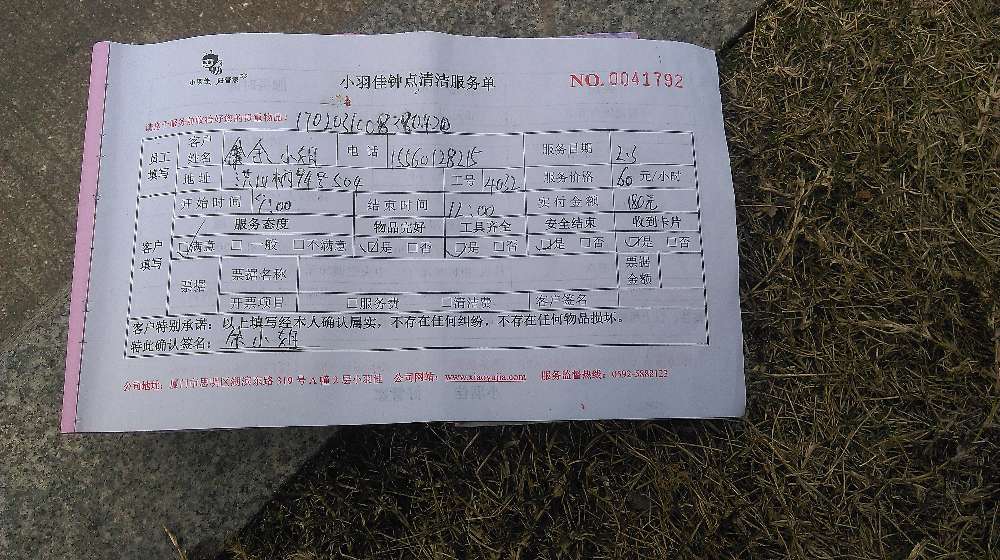 小羽佳 好管家
小羽佳钟点清洁服务单
NO. 0041792
请客户服务前收拾好您的贵重物品:
员工填写 客户姓名 余小姐 电话 15560128215 服务日期 2.3
地址 504 工号 4032 服务价格 60 元/小时
开始时间 9:00 结束时间 12:00 实付金额 180元
客户填写 服务态度 物品完好 工具齐全 安全结束 收到卡片
☑满意 □一般 □不满意 ☑是 □否 ☑是 □否 ☑是 □否 ☑是 □否
票据 票据名称 票据金额
开票项目 □服务费 □清洁费 客户签名
客户特别承诺:以上填写经本人确认属实,不存在任何纠纷,不存在任何物品损坏。
特此确认签名: 余小姐
公司地址:厦门市思明区湖滨东路319号A幢2层小羽佳 公司网站:www.xiaoyujia.com 服务监督热线:0592-5882123